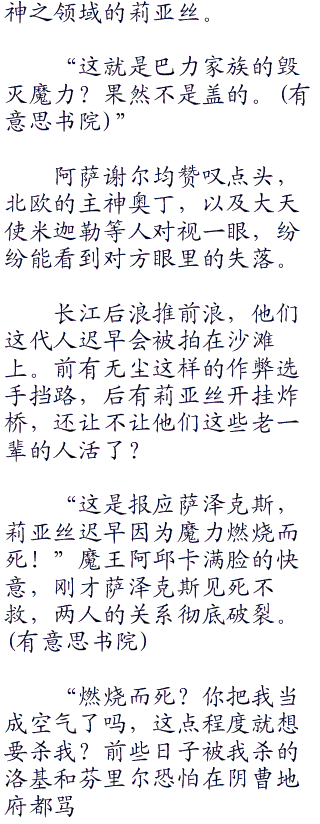 神之领域的莉亚丝。
“这就是巴力家族的毁
灭魔力？果然不是盖的。(有
意思书院)”
阿萨谢尔均赞叹点头，
北欧的主神奥丁，以及大天
使米迦勒等人对视一眼，纷
纷能看到对方眼里的失落。
长江后浪推前浪，他们
这代人迟早会被拍在沙滩
上。前有无尘这样的作弊选
手挡路，后有莉亚丝开挂炸
桥，还让不让他们这些老一
辈的人活了？
“这是报应萨泽克斯，
莉亚丝迟早因为魔力燃烧而
死！”魔王阿邱卡满脸的快
意，刚才萨泽克斯见死不
救，两人的关系彻底破裂。
(有意思书院)
“燃烧而死？你把我当
成空气了吗，这点程度就想
要杀我？前些日子被我杀的
洛基和芬里尔恐怕在阴曹地
府都骂